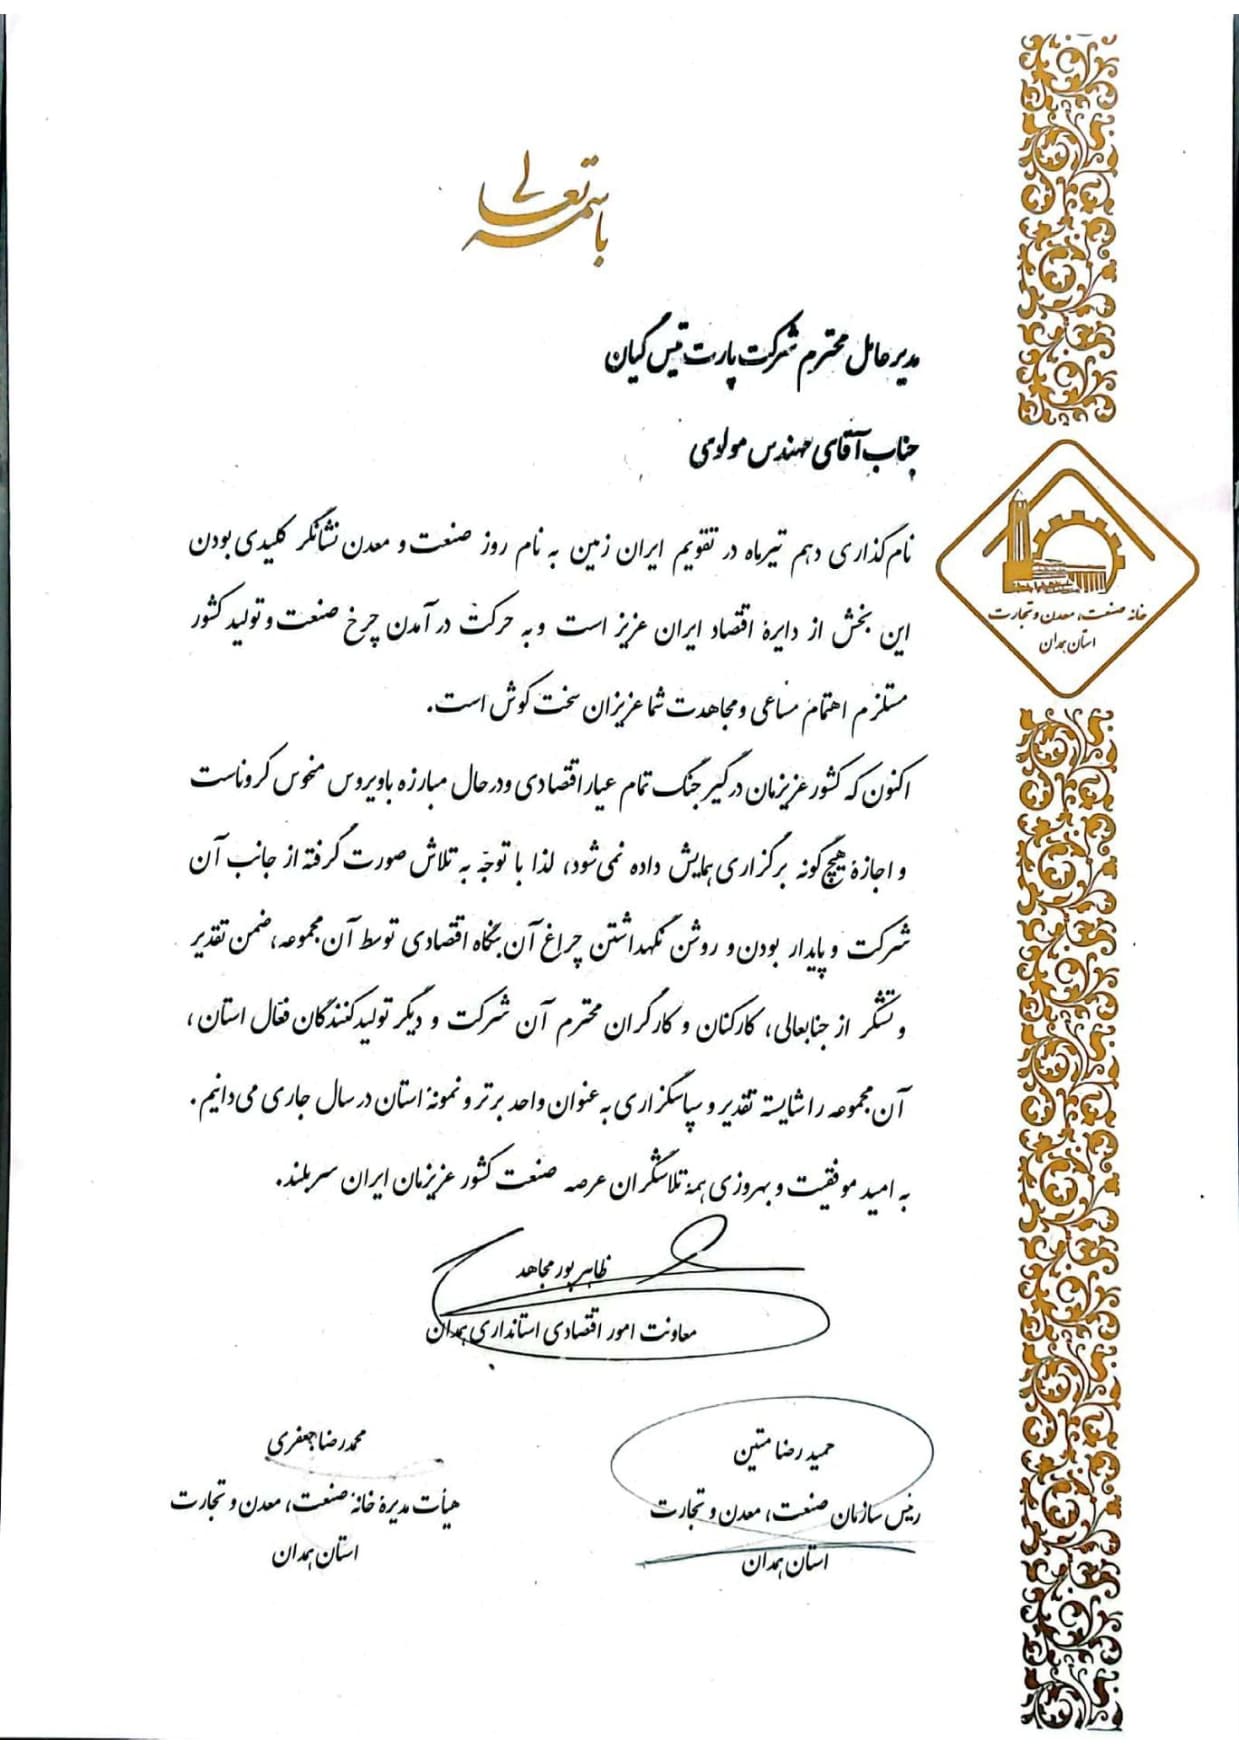 باسمه تعالی
مدیرعامل محترم شرکت پارت تیس گیان
جناب آقای مهندس مولوی
نام‌گذاری دهم تیرماه در تقویم ایران زمین به نام روز صنعت و معدن نشانگر کلیدی بودن
این بخش از دایرهٔ اقتصاد ایران عزیز است و به حرکت در آمدن چرخ صنعت و تولید کشور
مستلزم اهتمام مساعی و مجاهدت شما عزیزان سخت کوش است.
اکنون که کشور عزیزمان درگیر جنگ تمام عیار اقتصادی و درحال مبارزه با ویروس منحوس کروناست
و اجازهٔ هیچ‌گونه برگزاری همایش داده نمی‌شود، لذا با توجّه به تلاش صورت گرفته از جانب آن
شرکت و پایدار بودن و روشن نگهداشتن چراغ آن بنگاه اقتصادی توسط آن مجموعه، ضمن تقدیر
و تشکّر از جنابعالی، کارکنان و کارگران محترم آن شرکت و دیگر تولیدکنندگان فعّال استان،
آن مجموعه را شایسته تقدیر و سپاسگزاری به عنوان واحد برتر و نمونهٔ استان در سال جاری می‌دانیم.
به امید موفقیت و بهروزی همهٔ تلاشگران عرصه صنعت کشور عزیزمان ایران سربلند.
ظاهر پورمجاهد
معاونت امور اقتصادی استانداری همدان
حمید رضا متین
رئیس سازمان صنعت، معدن و تجارت
استان همدان
محمدرضا جعفری
هیأت مدیرهٔ خانهٔ صنعت، معدن و تجارت
استان همدان
خانه صنعت، معدن و تجارت
استان همدان